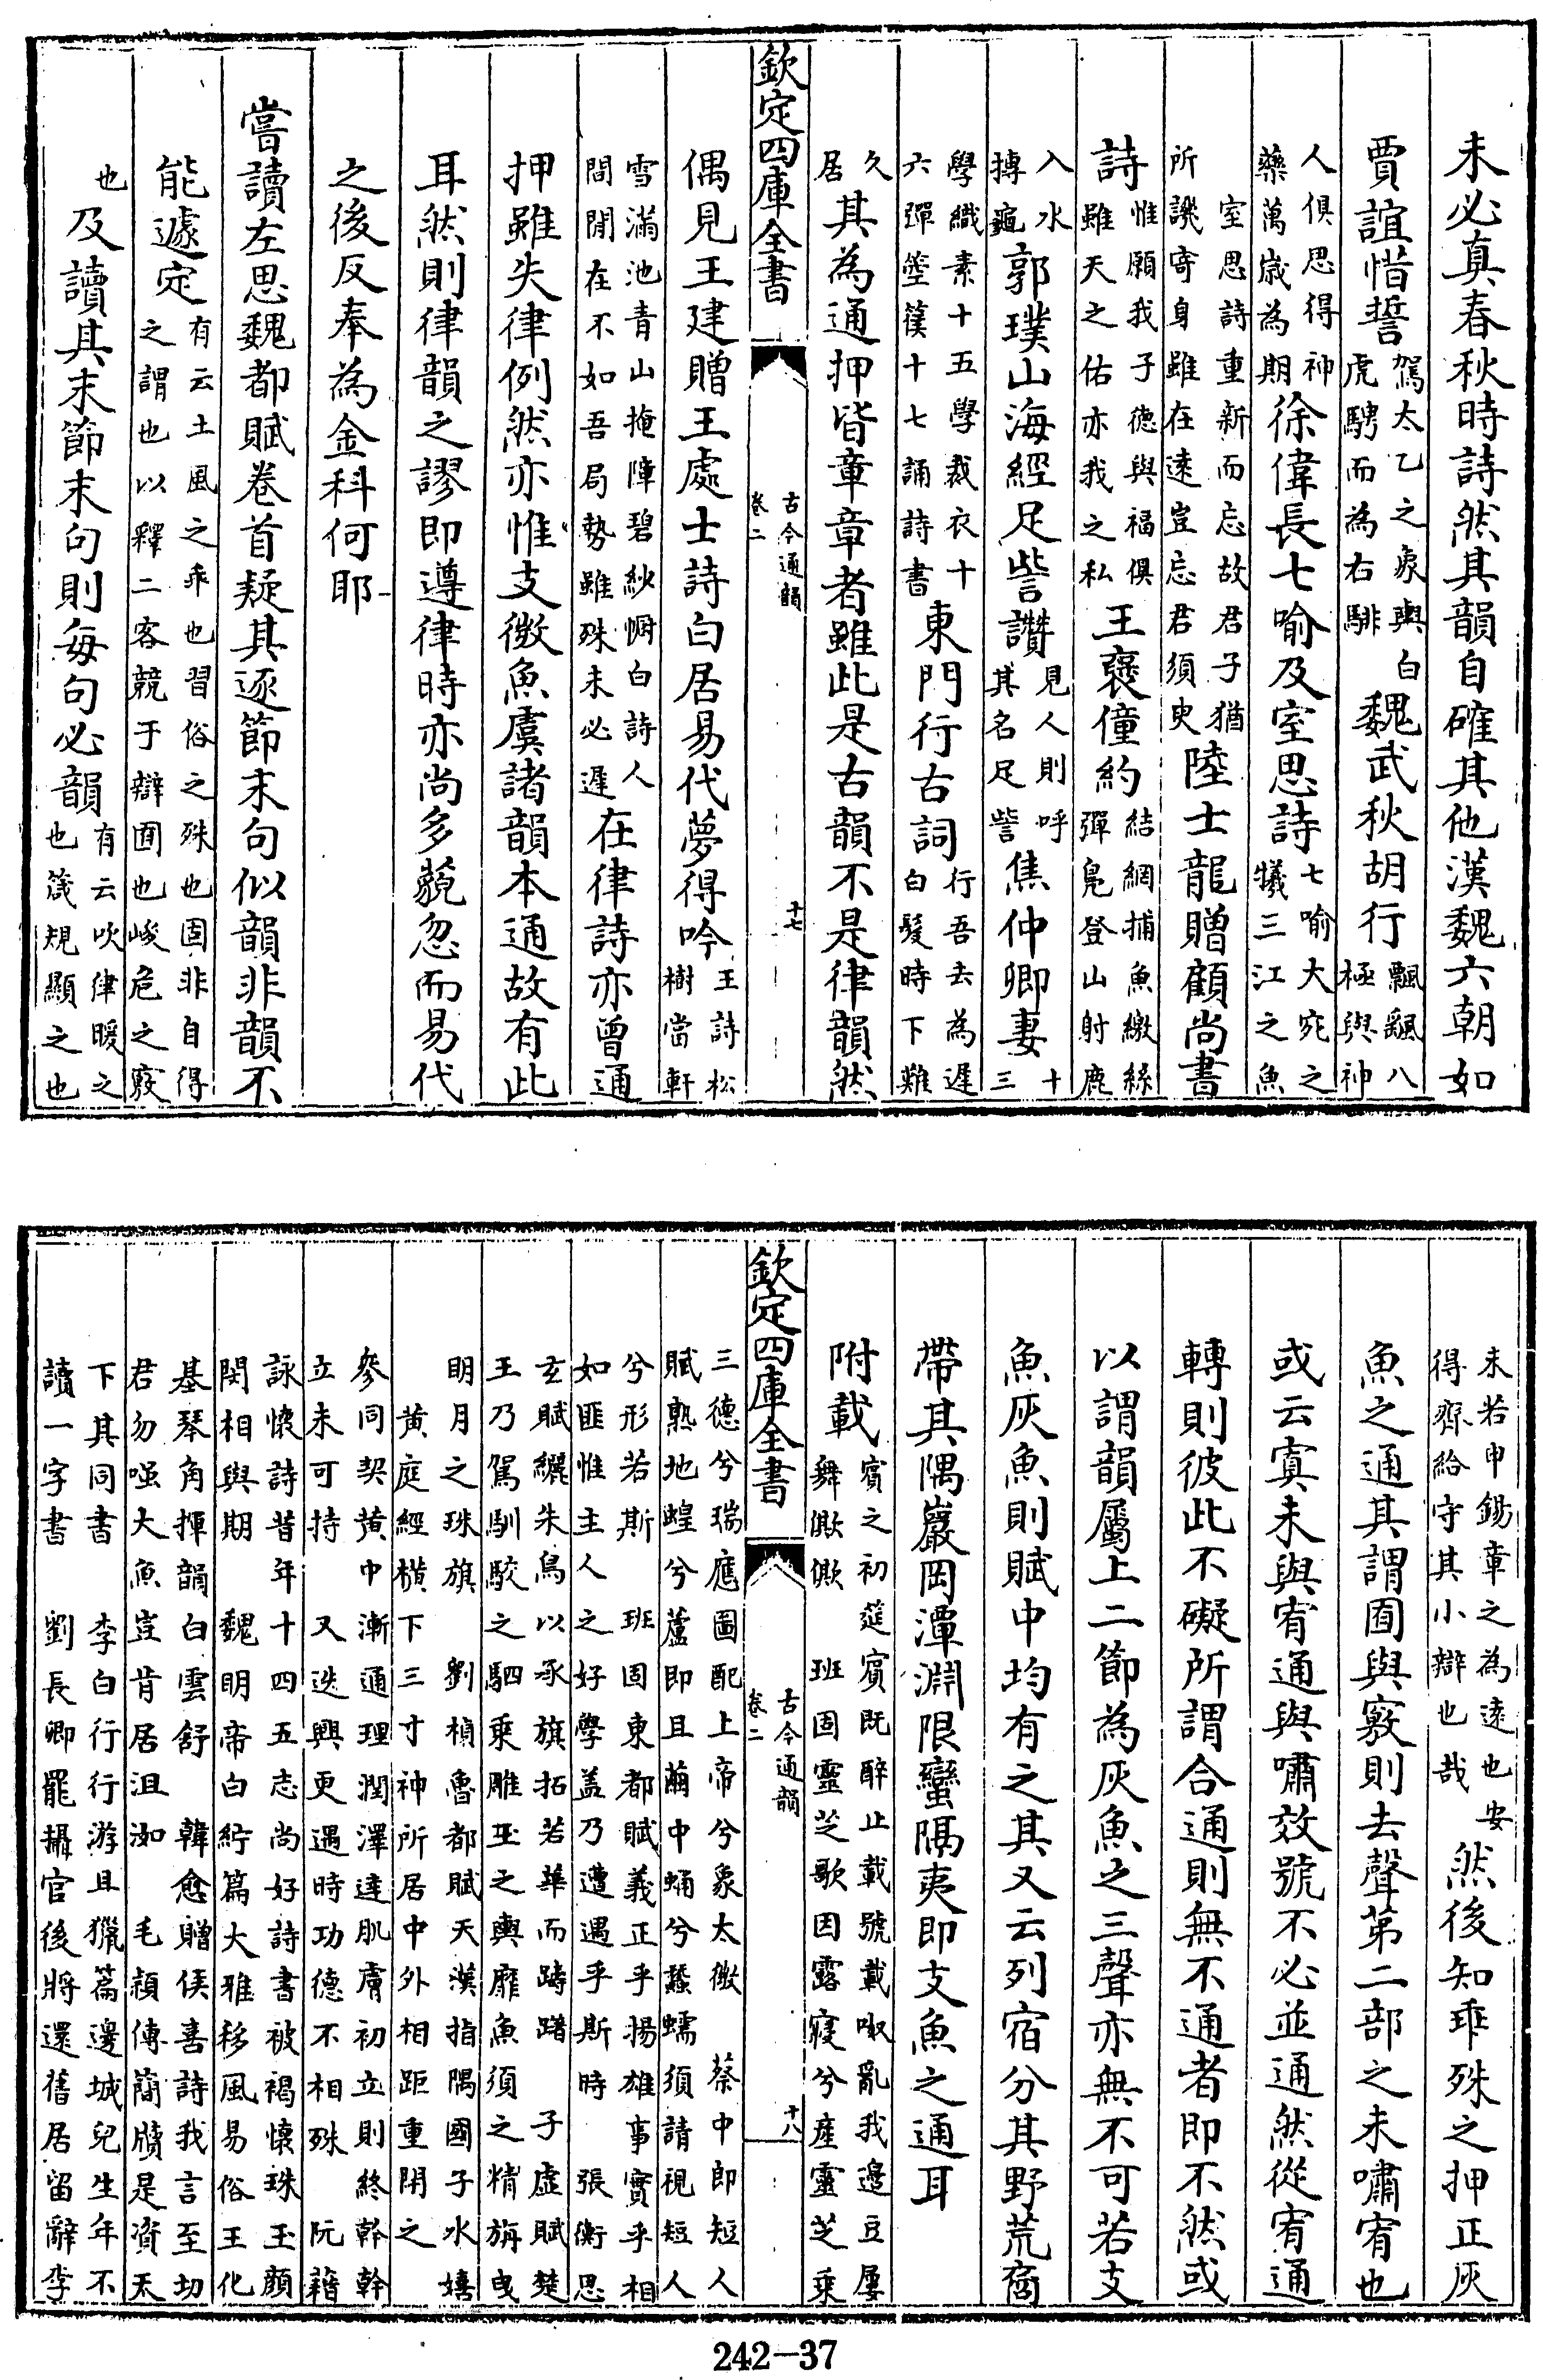 未必真春秋時詩然其韻自確其他漢魏六朝如
賈誼惜誓駕太乙之象輿白虎騁而為右騑魏武秋胡行飄飄八極與神
人俱思得神藥萬歲為期徐偉長七喻及室思詩七喻大宛之犧三江之魚
室思詩重新而忘故君子猶所譏寄身雖在遠豈忘君須臾陸士龍贈顧尚書
詩惟願我子德與福俱雖天之佑亦我之私王褒僮約結網捕魚繳綠彈鳧登山射鹿
入水摶龜郭璞山海經足訾讚見人則呼其名足訾焦仲卿妻十三
學織素十五學裁衣十六彈箜篌十七誦詩書東門行古詞行吾去為遲白髮時下難
久居其為通押皆章章者雖此是古韻不是律韻然
欽定四庫全書
古今通韻
卷二
十七
偶見王建贈王處士詩白居易代夢得吟王詩松樹當軒
雪滿池青山掩障碧紗㡡白詩人間閒在不如吾局勢雖殊未必遲在律詩亦曾通
押雖失律例然亦惟支微魚虞諸韻本通故有此
耳然則律韻之謬即遵律時亦尚多藐忽而易代
之後反奉為金科何耶
嘗讀左思魏都賦卷首疑其逐節末句似韻非韻不
能遽定有云土風之乖也習俗之殊也固非自得之謂也以釋二客競于辯囿也峻危之竅
也及讀其末節末句則每句必韻有云吹律暖之也箴規顯之也
未若申錫章之為遠也安得齊給守其小辯也哉然後知乖殊之押正灰
魚之通其謂囿與竅則去聲第二部之未嘯宥也
或云寘未與宥通與嘯效號不必並通然從宥通
轉則彼此不礙所謂合通則無不通者即不然或
以謂韻屬上二節為灰魚之三聲亦無不可若支
魚灰魚則賦中均有之其又云列宿分其野荒裔
帶其隅巖岡潭淵限蠻隔夷即支魚之通耳
附載賓之初筵賓既醉止載號載呶亂我籩豆屢舞僛僛 班固靈芝歌因露寢兮產靈芝乘
欽定四庫全書
古今通韻
卷二
十八
三德兮瑞應圖配上帝兮象太微 蔡中郎短人賦熱地蝗兮蘆即且繭中蛹兮蠶蠕須請視短人
兮形若斯 班固東都賦義正乎揚雄事實乎相如匪惟主人之好學盖乃遭遇乎斯時 張衡思
玄賦纚朱鳥以承旗拓若華而躊躇 子虛賦楚王乃駕馴駮之駟乘雕玉之輿靡魚須之精旃曳
明月之珠旗 劉楨魯都賦天漢指隅國子水嬉 黃庭經橫下三寸神所居中外相距重閉之
參同契黃中漸通理潤澤達肌膚初立則終幹幹立未可持 又迭興更遇時功德不相殊 阮籍
詠懷詩昔年十四五志尚好詩書被褐懷珠玉顏閔相與期 魏明帝白紵篇大雅移風易俗王化
基琴角揮韻白雲舒 韓愈贈侯喜詩我言至切君勿嗤大魚豈肯居沮洳 毛穎傳簡牘是資天
下其同書 李白行行游且獵篇邊城兒生年不讀一字書 劉長卿罷攝官後將還舊居留辭李
242-37